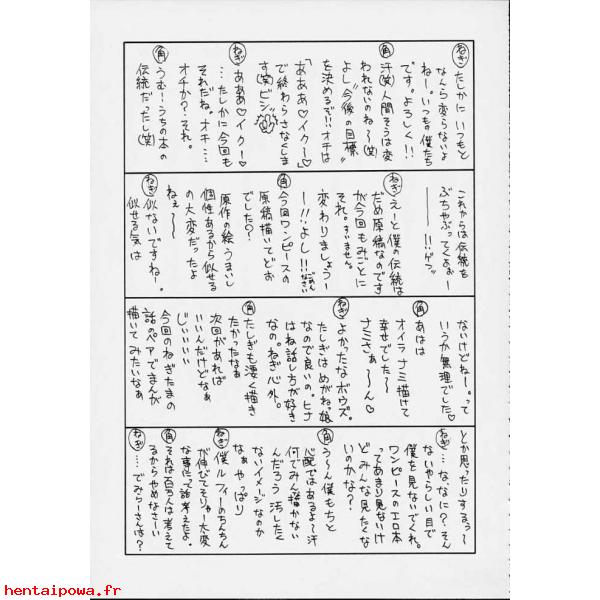 ねぎ たしかに いつもと
なんら変らないよ
ねー。いつもの僕たち
です。よろしく!!
角 汗(笑)人間そうは変
われないのね〜(笑)
よし"今後の目標"
を決めるぞ!!オチは
「あああ♡イク〜♡」
で終わらさなくしま
す(笑)ビシ
ねぎ あああ♡イク〜♡
…たしかに今回も
それだね。オチ…
オチか?それ。
角 うむ…うちの本の
伝統だったし(笑)
これからは伝統を
ぶちゃぶってくぁぉー
ーーー!!!ゲフッ
ねぎ えーと僕の伝統は
だめ原稿なのです
が今回もみごとに
それ。すいません。
変わりましょうー
ー!!よし!!ごめんなさい
角 今回ワンピースの
原稿描いてどお
でした?
原作の絵うまいし
個性あるから似せる
の大変だったよ
ねぇ〜
ねぎ 似ないですねー。
似せる気は
ないけどねー。って
いうか無理でした♡
角 あはは
オイラ ナミ描けて
幸せでした〜
ナミさぁ〜〜ん♡
ねぎ よかったなボウズ。
たしぎはめがねっ娘
なので良いの。ヒナ
はね話し方が好き
なの。ねぎ心外。
角 たしぎも凄く描き
たかったなぁ
次回があれば
いいんだけどなぁ
じぃいいいい
今回のねぎたまの
話のペアでまんが
描いてみたいなぁ
とか思ったりするっ〜
ねぎ …な、なに?そん
ないやらしい目で
僕を見ないでくれ。
ワンピースのエロ本
ってあまり見ないけ
どみんな見たくな
いのかな?
角 う〜ん僕もちと
心配ではあるよ〜汗
何でみんな描かない
んだろう汚したく
ないイメージなのか
なぁやっぱり
ねぎ 僕ルフィーのちんちん
が伸びてそりゃー大変
な事にって話考えたよ。
角 それは百万人は考えて
るからやめなさーい
ねぎ …でみらーさんは?
hentaipowa.fr